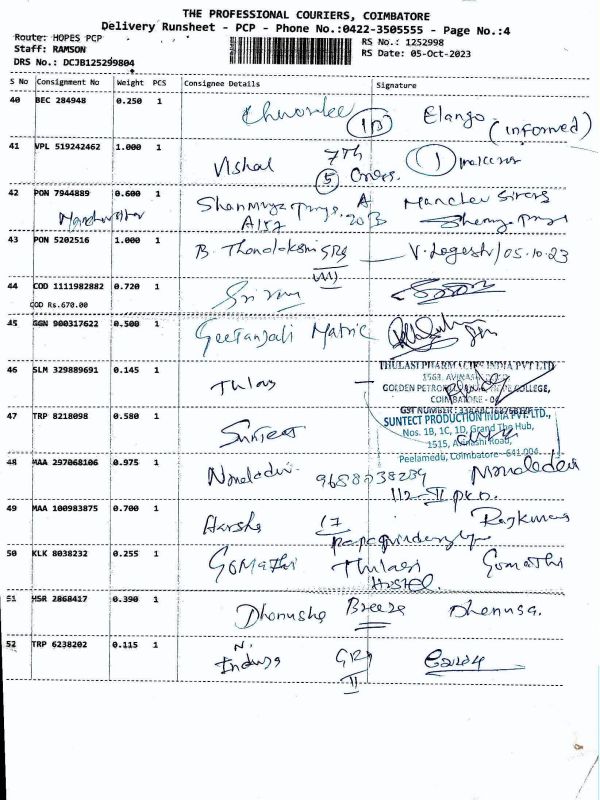 THE PROFESSIONAL COURIERS, COIMBATORE
Delivery Runsheet - PCP - Phone No.:0422-3505555 - Page No.:4
Route: HOPES PCP
RS No.: 1252998
Staff: RAMSON
RS Date: 05-Oct-2023
DRS No.: DCJB125299804
S No Consignment No Weight PCS Consignee Details Signature
40 BEC 284948 0.250 1 Elango (informed)
41 VPL 519242462 1.000 1 Vishal 7th
5
42 PON 7944889 0.600 1 A
A157 20 B
43 PON 5202516 1.000 1 B. V. Logesh/05.10.23
44 COD 1111982882 0.720 1 Sriram
COD Rs.670.00
45 GGN 900317622 0.500 1 Geetanjali Matric
46 SLM 329889691 0.145 1 Thulas
THULASI PHARMACIES INDIA PVT LTD
1563, AVINASHI ROAD
COIMBATORE
47 TRP 8218098 0.580 1 Suntect
SUNTECT PRODUCTION INDIA PVT. LTD.,
Nos. 1B, 1C, 1D, Grand The Hub,
1515, Avinashi Road,
Peelamedu, Coimbatore - 641 004.
48 MAA 297068106 0.975 1 9658038239
49 MAA 100983875 0.700 1 Harsha 17 Rajkumar
50 KLK 8038232 0.255 1 Gomathi Thulasi Gomathi
Hostel
51 HSR 2868417 0.390 1 Dhanusha Breeze Dhanusa.
52 TRP 6238202 0.115 1 N.
Induja GRD
II